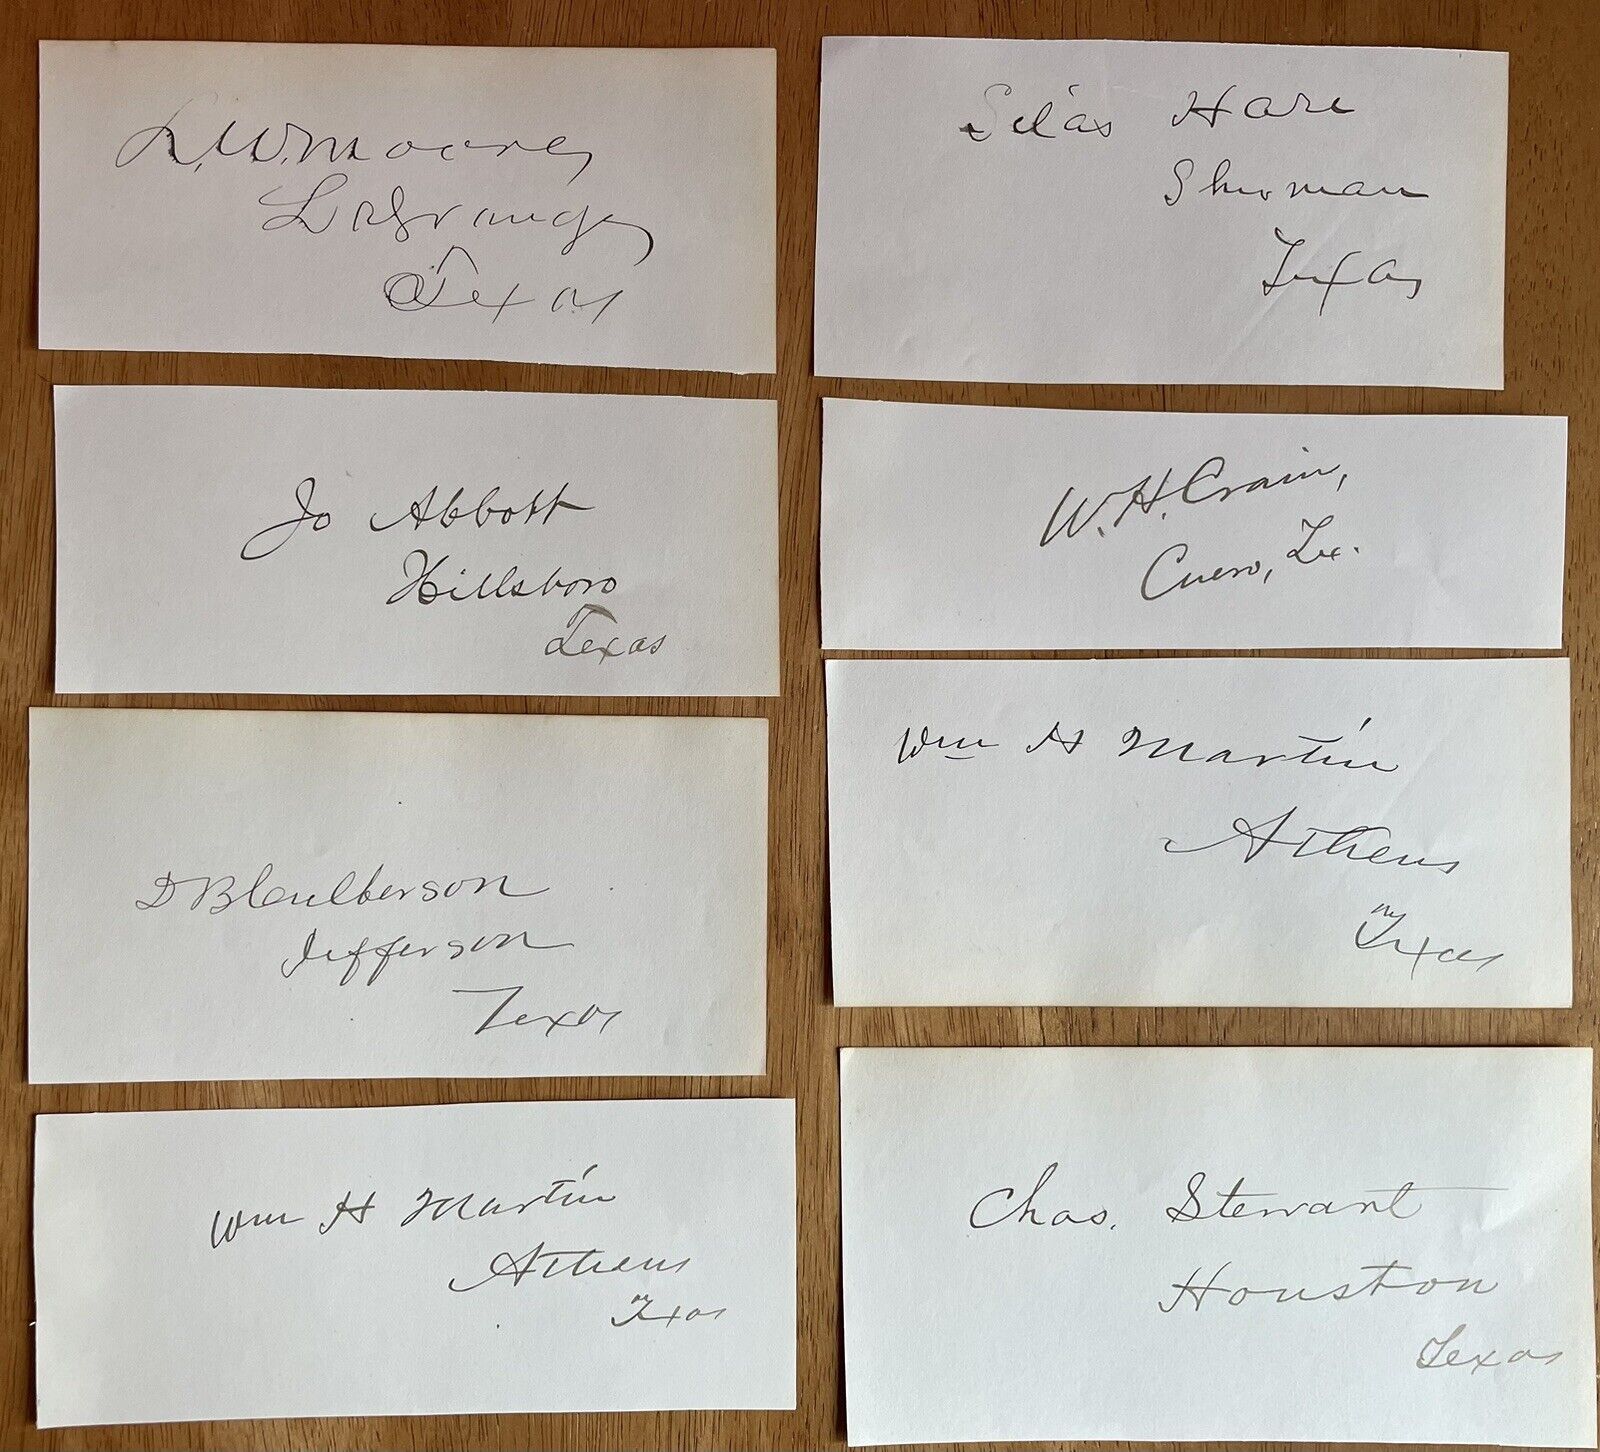 L. W. Moore,
LaGrange,
Texas
Jo Abbott
Hillsboro
Texas
D B Culberson
Jefferson
Texas
Wm H Martin
Athens
Texas
Silas Hare
Sherman
Texas
W. H. Crain,
Cuero, Tex.
Wm H Martin
Athens
Texas
Chas. Stewart
Houston
Texas